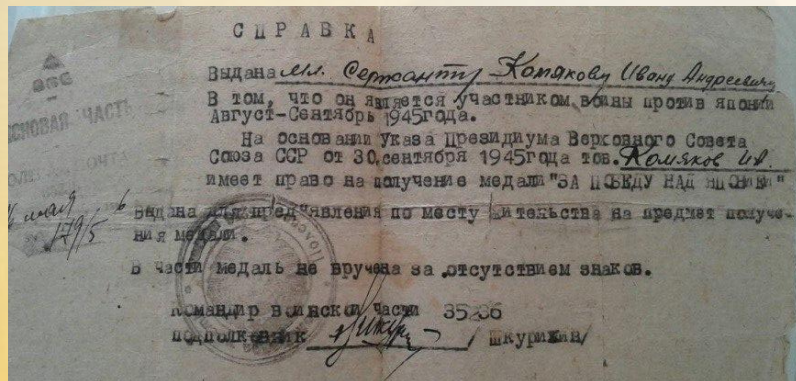 СПРАВКА
Выдана мл. Сержанту Комякову Ивану Андреевичу
В том, что он является участником войны против японии
Август-Сентябрь 1945года.
На основании Указа Президиума Верховного Совета
Союза ССР от 30 сентября 1945года тов. Комяков И.А.
имеет право на получение медали "ЗА ПОБЕДУ НАД ЯПОНИЕЙ"
Выдана для пред'явления по месту жительства на предмет получе-
ния медали.
В части медаль не вручена за отсутствием знаков.
Командир воинской части 35206
подполковник / Шкурихин/
ЧАСТЬ
мая